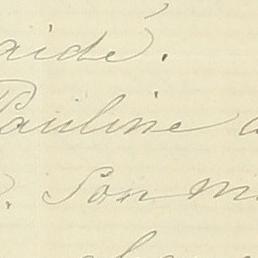 aidé.
Pauline a
. Son m